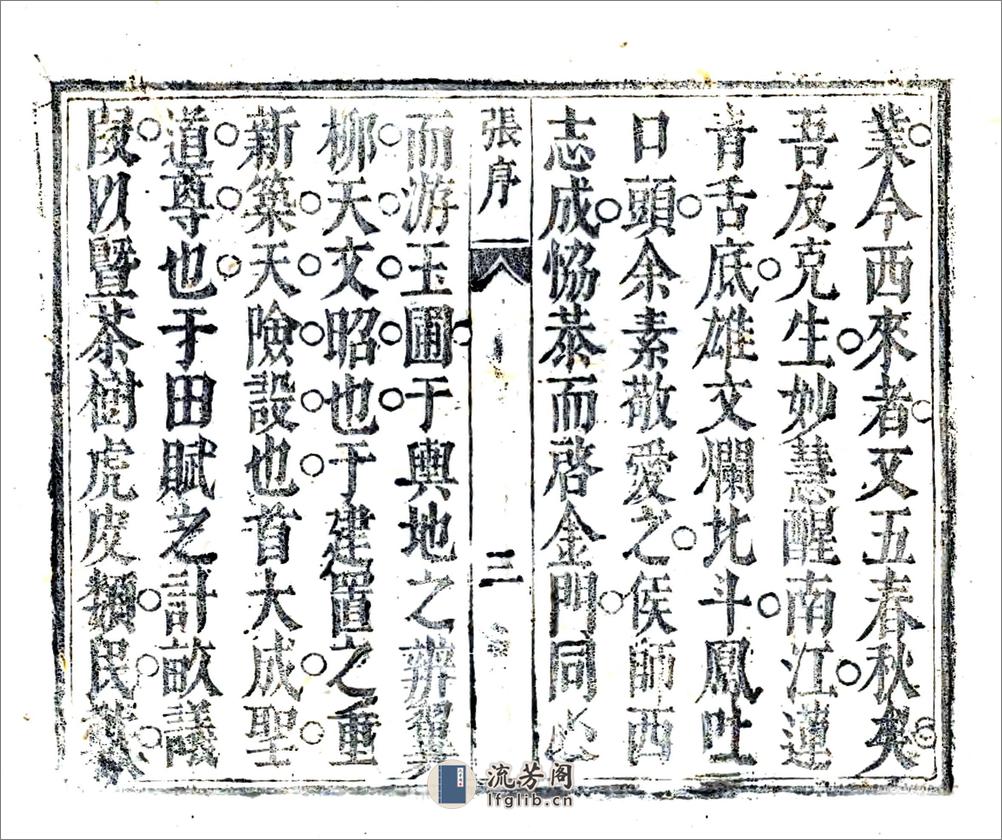 業今西來者又五春秋矣
吾友克生妙慧醒南江蓮
青舌底雄文爛北斗鳳吐
口頭余素敬愛之矦師西
志成恊恭而啓金門同必
張序
三
而游玉圃于輿地之辨翼
柳天文昭也于建置之重
新築天險設也首大成聖
道尊也于田賦之計畝議
以暨茶樹虎皮類民
流芳阁
lfglib.cn